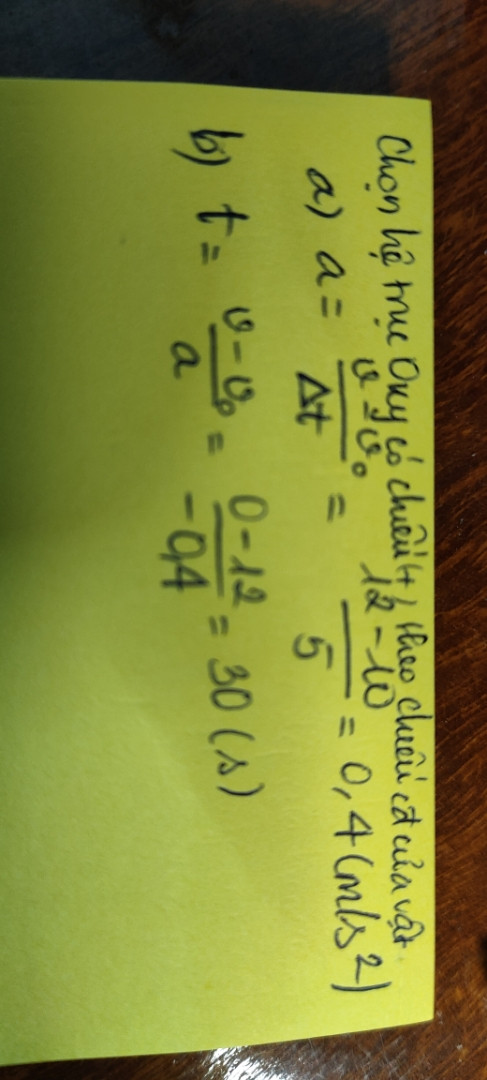 Chọn hệ trục Oxy có chiều (+) theo chiều cđ của vật.
a) a = \frac{v - v₀}{Δt} = \frac{12 - 10}{5} = 0,4 (m/s²)
b) t = \frac{v - v₀}{a} = \frac{0 - 12}{-0,4} = 30 (s)